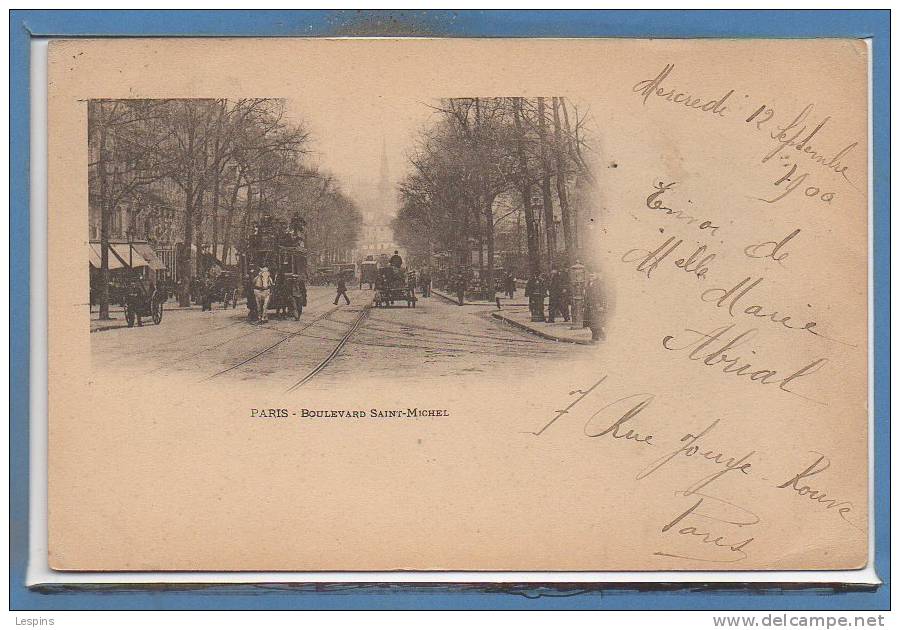 Mercredi 12 Septembre
1900
Envoi de
Melle Marie
Abrial
7 Rue Jouye-Rouve
Paris
PARIS - BOULEVARD SAINT-MICHEL
Lespins
www.delcampe.net